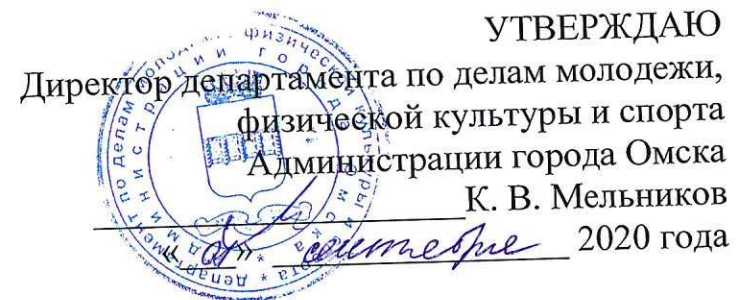 УТВЕРЖДАЮ
Директор департамента по делам молодежи,
физической культуры и спорта
Администрации города Омска
К. В. Мельников
« » сентября 2020 года